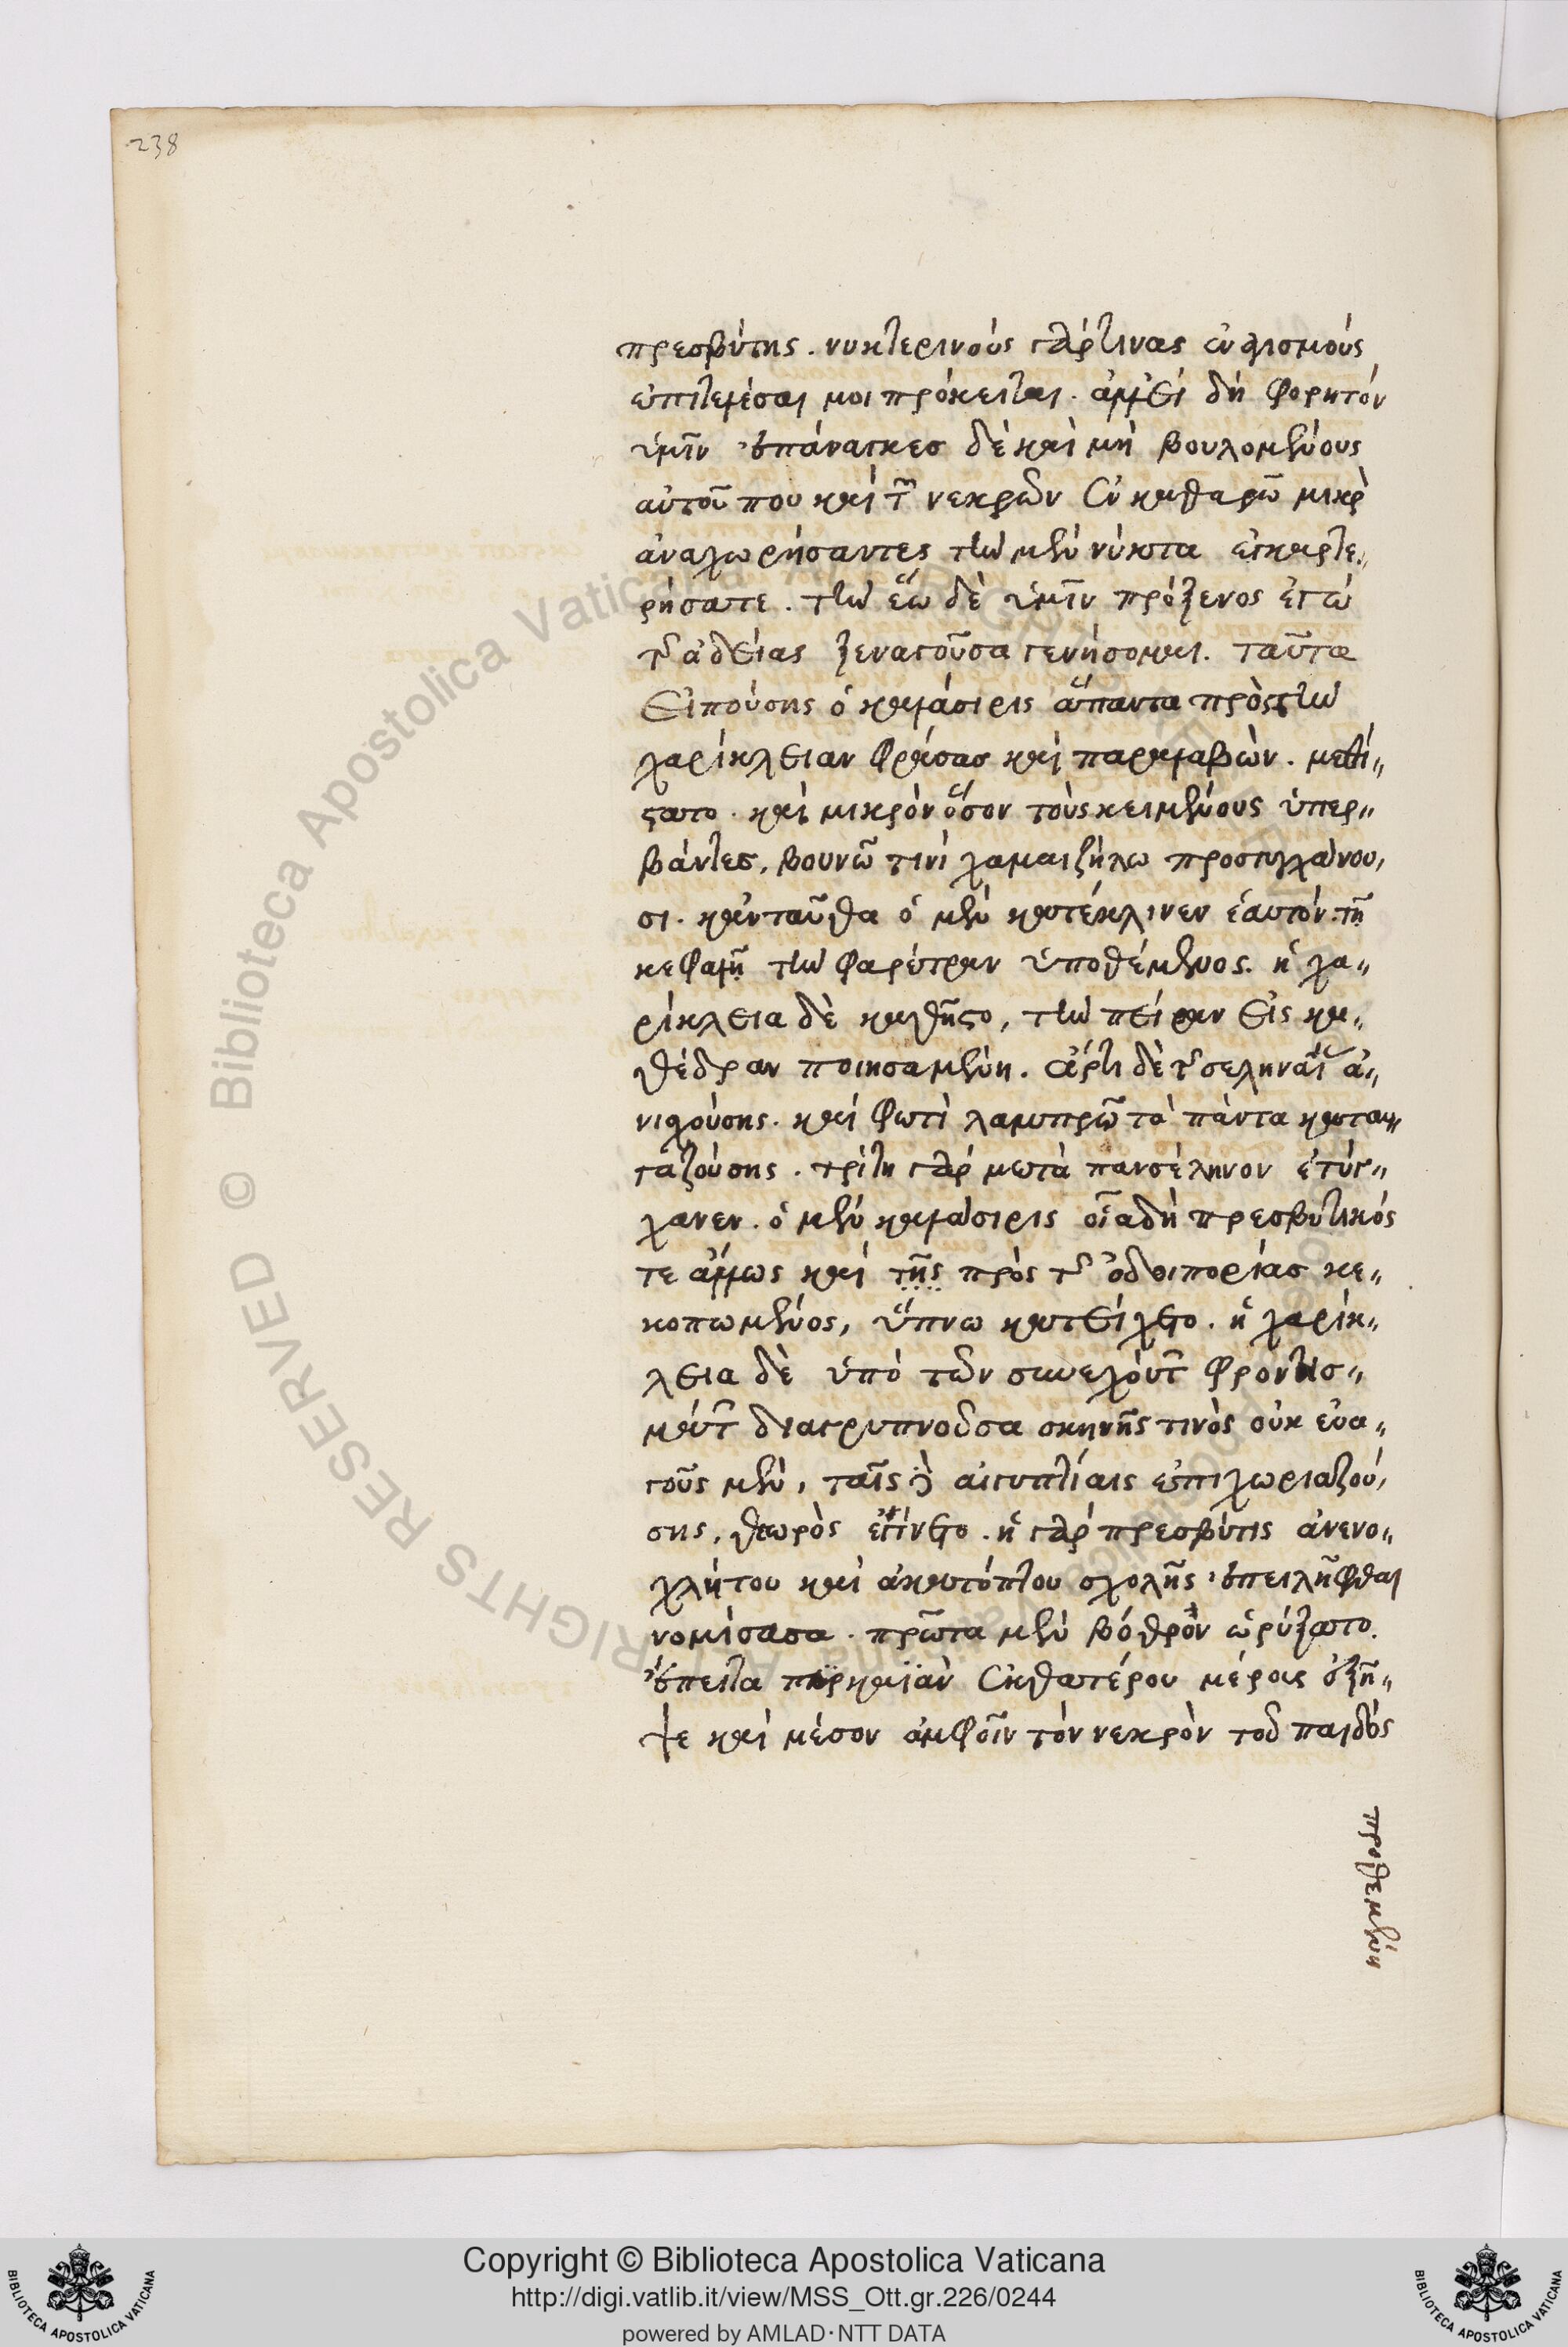 238
πρεσβύτης. νυκτερινούς γάρ τινας ἐναγισμούς
ἐπιτελέσαι μοι πρόκειται. ἀλλεί δή φορητόν
ὑμῖν ἐπάναγκεσ δὲ καὶ μὴ βουλομένους
αὐτοῦ που καί τῶν νεκρῶν ἐν καθαρῶ μικρὸν
ἀναχωρήσαντες τὴν μὲν νύκτα ἐγκαρτε,,
ρήσατε. τὴν ἕω δὲ ὑμῖν πρόξενος ἐγώ
τῆς ἀδείας ξεναγοῦσα γενήσομαι. ταῦτα
εἰπούσης ὁ καλάσιρις ἅπαντα πρὸς τὴν
χαρίκλειαν φράσας καὶ παραλαβὼν. μεθί,,
στατο. καὶ μικρὸν ὅσον τοὺς κειμένους ὑπερ,,
βάντες, βουνῶ τινὶ χαμαιζήλω προστυγχάνου,
σι. κἀνταῦθα ὁ μὲν κατέκλινεν ἑαυτόν. τῆ
κεφαλῆ τὴν φαρέτραν ὑποθέμενος. ἡ χα,,
ρίκλεια δὲ καθῆστο, τὴν πείραν εἰς κα,,
θέδραν ποιησαμένη. ἄρτι δὲ τῆς σεληναί ἀ,,
νισχούσης. καί φωτὶ λαμπρῶ τὰ πάντα καταυ,,
γαζούσης. τρίτη γάρ μετὰ πανσέληνον ἐτύγ,,
χανεν. ὁ μὲν καλάσιρις οἷα δὴ πρεσβυτικός
τε ἄλλως καί τῆς πρὸς τῆς ὁδοιπορίας κε,,
κοπωμένος, ὕπνω κατείχετο. ἡ χαρίκ,,
λεια δὲ ὑπὸ τῶν συνεχόντων φροντισ,,
μάτων διαγρυπνοῦσα σκηνῆς τινὸς οὐκ εὐα,,
γοῦς μὲν, ταῖς δὲ αἰγυπτίαις ἐπιχωριαζού,
σης, θεωρὸς ἐγίνετο. ἡ γάρ πρεσβύτις ἀνενο,,
χλήτου καί ἀκατόπτου σχολῆς ἐπειλῆφθαι
νομίσασα. πρῶτα μὲν βόθρον ὠρύξατο.
ἔπειτα πυρκαϊὰν ἐκ θατέρου μέρους ἐξῆ,,
ψε καί μέσον ἀμφοῖν τὸν νεκρὸν τοῦ παιδὸς
προθεμένη
Copyright © Biblioteca Apostolica Vaticana
http://digi.vatlib.it/view/MSS_Ott.gr.226/0244
powered by AMLAD·NTT DATA